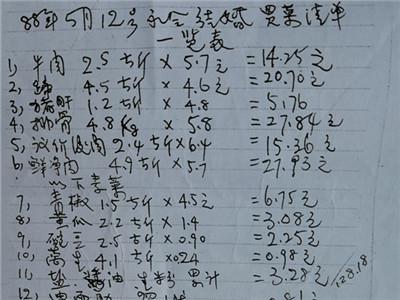 88年5月12号永全结婚买菜清单
一览表
1, 牛肉 2.5市斤×5.7元=14.25元
2, 蹄 4.5市斤×4.6元=20.70元
3, 猪肝 1.2市斤×4.8=5.76
4, 排骨 4.8kg×5.8=27.84元
5, 议价后肉 2.4市斤×6.4=15.36元
6, 鲜净肉 4.9市斤×5.7=27.93元
以下素菜
7, 青椒 1.5市斤×4.5元=6.75元
8, 黄瓜 2.2市斤×1.4=3.08元
9, 2.5市斤×0.90=2.25元
10, 莴 4.1市斤×024=0.98元
11, 盐 酱油 生粉 累计=3.28元
128.18
12,